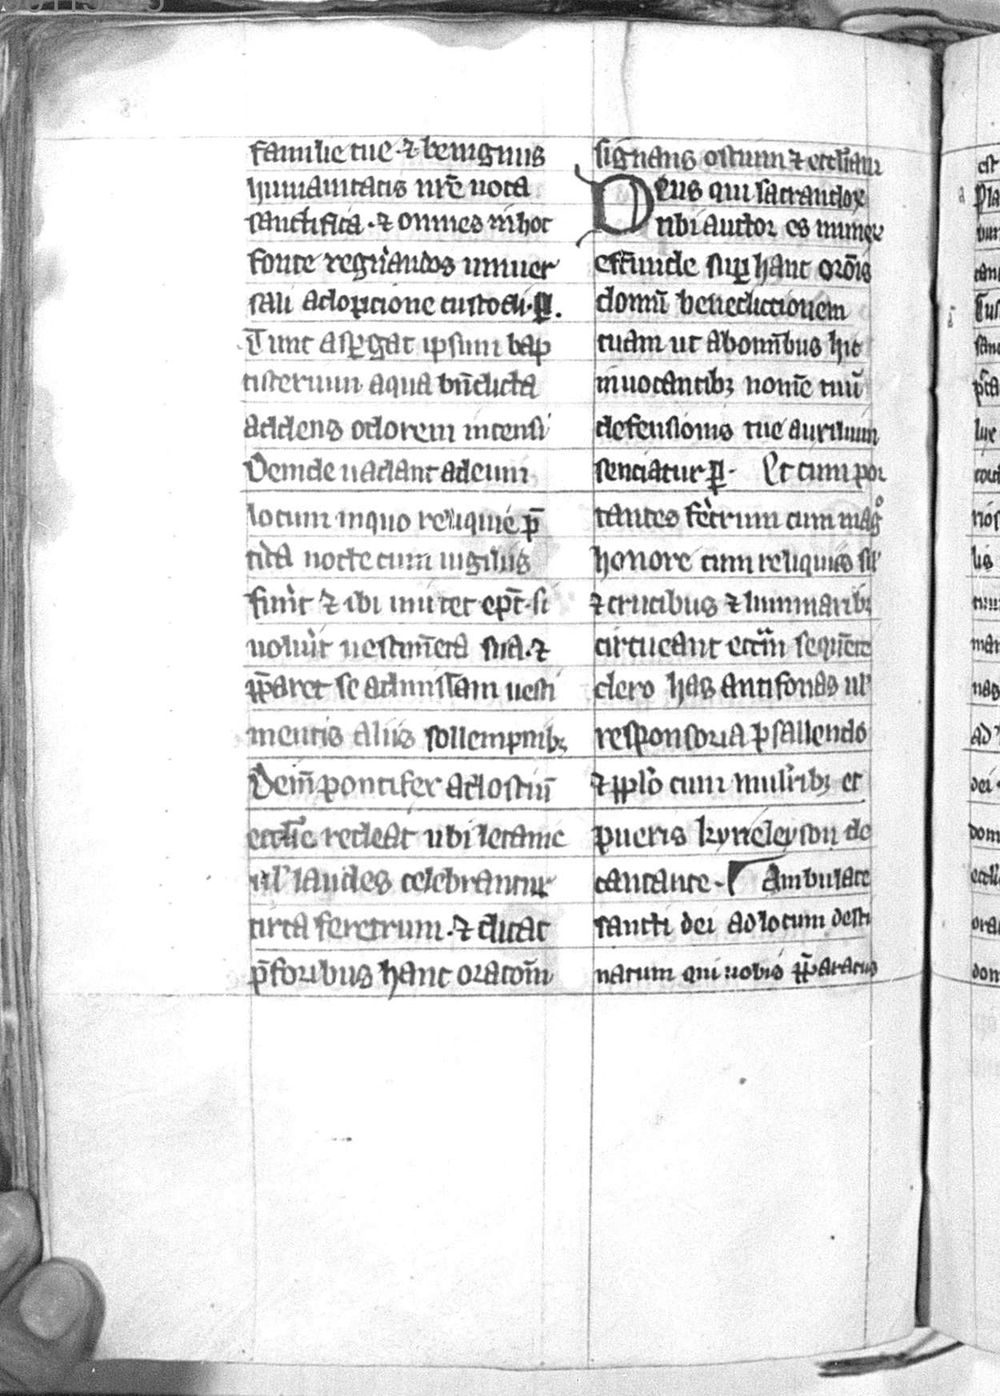 familie tue · ⁊ benignius
humanitatis nr̄e uota
sanctifica · ⁊ omnes in hoc
fonte regn̄andos uniuer
sali adopcione custodi · ꝑ.
Tunc asꝑgat ipsum bap
tisterium aqua bn̄dicta
addens odorem incensi
Deinde uadant ad eum
locum in quo reliquie p̄
tita nocte cum uigiliis
fuīt ⁊ ibi mutet ep̄c · si
uolūit uestim̄ta sua · ⁊
p̄paret se ad missam uesti
mentis aliis sollempnibꝫ
Dein̄ pontifex ad ostiū
eccl̄ie redeat ubi letanie
ul̄ laudes celebrantur
circa feretrum · ⁊ dicat
p̄ foribus hanc oracōm
signans ostium ⁊ eccl̄iam
Deus qui sacrandoꝝ
tibi auctor es muneꝝ
effunde suꝑ hanc orōīs
domū benedictionem
tuam ut ab om̄ibus hic
inuocantibꝫ nomē tuū
defensionis tue auxilium
senciatur ꝑ · Et cum por
tantes fētrum cum magͦ
honore cum reliquiis sil̄
⁊ crucibus ⁊ luminaribꝫ
circueant eccl̄iam sequēte
clero has antifonas ul̄
responsoria psallendo
⁊ ppl̄o cum mul̄ribꝫ et
pueris kyrieleyson de
cantante · Ambulate
sancti dei ad locum desti
natum qui uobis p̄paratus